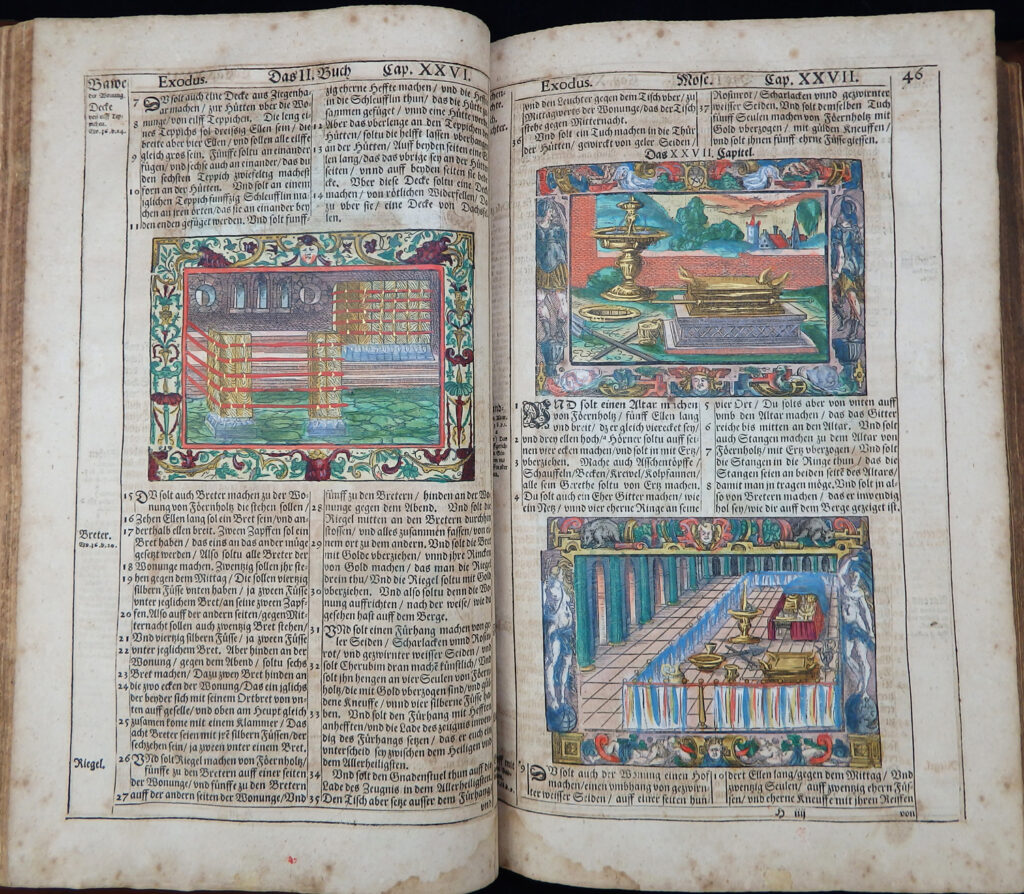 Exodus. Das II. Buch Cap. XXVI.
Bawe
der Wonung.
Decke
7 DV solt auch eine Decke aus Ziegenhar
machen / zur Hütten vber die Wo
8 nung / von eilff Teppichen. Die leng ei
nes Teppichs sol dreissig Ellen sein / die
breite aber vier Ellen / vnd sollen alle eilffe
9 gleich gros sein. Fünffe soltu an einander
fügen / vnd sechse auch an einander / das du
den sechsten Teppich zwiefeltig machest
10 forn an der Hütten. Vnd solt an einem
jglichen Teppich funffzig Schleufflin ma
chen an jren orten / das sie an einander bey
11 den enden gefüget werden. Vnd solt funff
zig eherne Heffte machen / vnd die Heffte
in die Schleufflin thun / das die Hütte zu
sammen gefüget / vnnd eine Hütte werde.
12 Aber das vberlenge an den Teppichen der
Hütten / soltu die helfft lassen vberhangen
13 an der Hütten / Auff beyden seiten eine El
len lang / das das vbrige sey an der Hütten
seiten / vnnd auff beyden seiten sie bede
cke. Vber diese Decke soltu eine Decke
14 machen / von rötlichen Widerfellen / Da
zu vber sie / eine Decke von Dachsfel
len.
Breter.
15 DV solt auch Breter machen zu der Wo
nung von Föernholtz die stehen sollen /
16 Zehen Ellen lang sol ein Bret sein / vnd an
17 derthalb ellen breit. Zween Zapffen sol ein
Bret haben / das eins an das ander müge
gesetzt werden / Also soltu alle Breter der
18 Wonunge machen. Zwenzig sollen jhr ste
19 hen gegen dem Mittag / Die sollen vierzig
silbern Füsse vnten haben / ja zween Füsse
vnter jeglichem Bret / an seine zween Zapf
20 fen. Also auff der andern seiten / gegen Mit
ternacht sollen auch zwenzig Bret stehen /
21 Vnd vierzig silbern Füsse / ja zween Füsse
22 vnter jeglichem Bret. Aber hinden an der
Wonung / gegen dem Abend / soltu sechs
23 Bret machen / Dazu zwey Bret hinden an
24 die zwo ecken der Wonung / Das ein jglichs
der beyder sich mit seinem Ortbret von vn
ten auff geselle / vnd oben am Heupt gleich
25 zusamen kome mit einem Klammer / Das
acht Breter seien mit jre silbern Füssen / der
sechzehen sein / ja zween vnter einem Bret.
Riegel.
26 VNd solt Riegel machen von Föernholtz /
fünffe zu den Bretern auff einer seiten
der Wonunge / vnd fünffe zu den Bretern
27 auff der andern seiten der Wonunge / Vnd
fünff zu den Bretern / hinden an der Wo
28 nunge gegen dem Abend. Vnd solt die
Riegel mitten an den Bretern durchhin
stossen / vnd alles zusammen fassen / von ei
29 nem ort zu dem andern. Vnd solt die Bret
mit Golde vberziehen / vnnd jhre Rincken
von Gold machen / das man die Riegel
drein thu / Vnd die Riegel soltu mit Gold
30 vberziehen. Vnd also soltu denn die Wo
nung auffrichten / nach der weise / wie du
gesehen hast auff dem Berge.
31 VNd solt einen Fürhang machen von ge
ler Seiden / Scharlacken vnnd Rosin
rot / vnd gezwirnter weisser Seiden / Vnd
32 solt Cherubim dran mache künstlich / Vnd
solt jhn hengen an vier Seulen von Föern
holtz / die mit Gold vberzogen sind / vnd güld
ene Kneuffe / vnnd vier silberne Füsse haben.
33 Vnd solt den Fürhang mit Hefften
anhefften / vnd die Lade des zeugnis inwen
dig des Fürhangs setzen / das er euch ein
vnterscheid sey zwischen dem Heiligen vnd
dem Allerheiligsten.
34 Vnd solt den Gnadenstuel thun auff die
Lade des Zeugnis in dem Allerheiligsten
35 Den Tisch aber setze ausser dem Fürhang
vnd
Exodus. Mose. Cap. XXVII. 46
vnd den Leuchter gegen dem Tisch vber / zu
Mittagwerts der Wonunge / das der Tisch
stehe gegen Mitternacht.
36 Vnd solt ein Tuch machen in die Thür
der Hütten / gewirckt von geler Seiden /
Rosinrot / Scharlacken vnnd gezwirnter
37 weisser Seiden. Vnd solt demselben Tuch
fünff Seulen machen von Föernholtz mit
Gold vberzogen / mit gülden Kneuffen /
vnd solt ihnen fünff ehrne Füsse giessen.
Das XXVII. Capitel.
1 VND solt einen Altar machen
von Föernholtz / fünff Ellen lang
vnd breit / dz er gleich viereckt sey /
2 vnd drey ellen hoch / Hörner soltu auff sei
nen vier ecken machen / vnd solt jn mit Ertz
3 vberziehen. Mache auch Asschentöpffe /
Schauffeln / Becken / Krewel / Kolpfannen /
alle sein Grethe soltu von Ertz machen.
4 Du solt auch ein Eher Gitter machen / wie
ein Netz / vnnd vier eherne Ringe an seine
5 vier Ort / Du solts aber von vnten auff
vmb den Altar machen / das das Gitter
reiche bis mitten an den Altar. Vnd solt
auch Stangen machen zu dem Altar von
7 Föernholtz / mit Ertz vberzogen. Vnd solt
die Stangen in die Ringe thun / das die
Stangen seien an beiden seitē des Altars /
8 damit man jn tragen möge. Vnd solt jn al
so von Bretern machen / das er inwendig
hol sey / wie dir auff dem Berge gezeiget ist.
9 DV solt auch der Wonung einen Hof
machen / einen vmbhang von gezwirn
ter weisser Seiden / auff einer seiten hun
10 dert Ellen lang / gegen dem Mittag / Vnd
zwenzig Seulen / auff zwenzig ehern Füs
sen / vnd eherne Kneuffe mit jhren Reiffen
H iiij
von